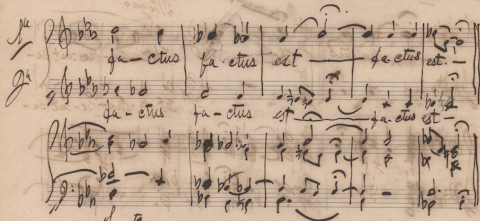 fa-ctus fa-ctus est — fa-ctus est-
fa-ctus fa-ctus est — fa-ctus est-